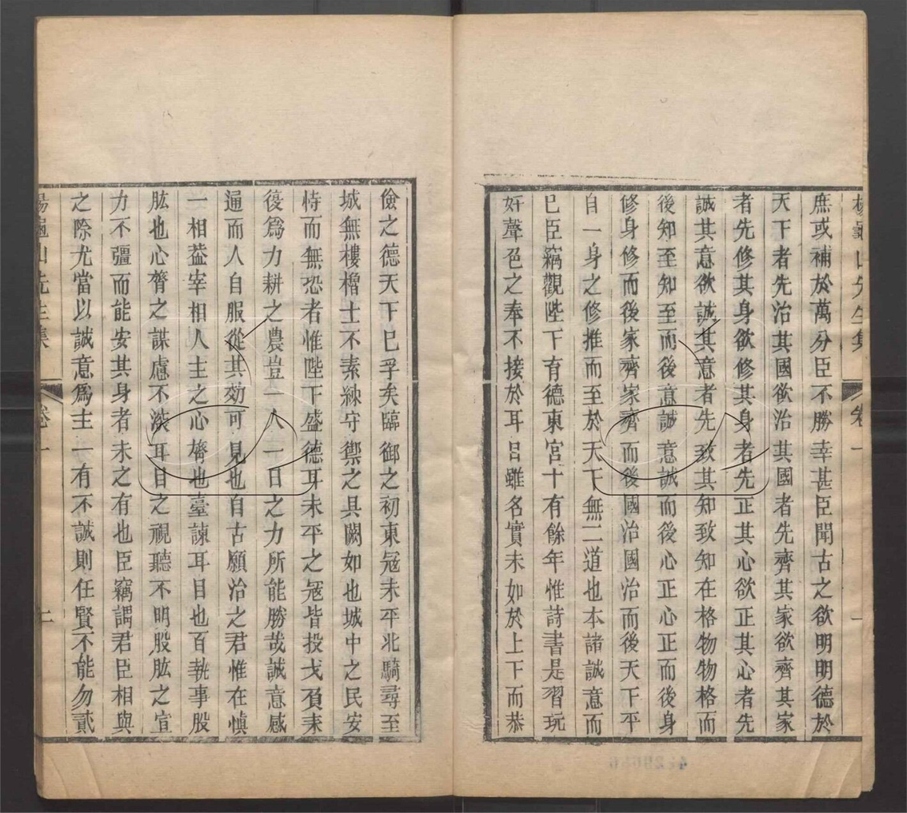 楊龜山先生集 卷一
庶或補於萬分臣不勝幸甚臣聞古之欲明明德於
天下者先治其國欲治其國者先齊其家欲齊其家
者先修其身欲修其身者先正其心欲正其心者先
誠其意欲誠其意者先致其知致知在格物物格而
後知至知至而後意誠意誠而後心正心正而後身
修身修而後家齊家齊而後國治國治而後天下平
自一身之修推而至於天下無二道也本諸誠意而
已臣竊觀陛下育德東宮十有餘年惟詩書是習玩
好聲色之奉不接於耳目雖名實未如於上下而恭
儉之德天下已孚矣臨御之初東冦未平北騎尋至
城無樓櫓士不素練守禦之具闕如也城中之民安
恃而無恐者惟陛下盛德耳未平之冦皆投戈負耒
後爲力耕之農豈一人一日之力所能勝哉誠意感
通而人自服從其効可見也自古願治之君惟在慎
一相葢宰相人主之心膂也臺諫耳目也百執事股
肱也心膂之謀慮不淺耳目之視聽不明股肱之宣
力不彊而能安其身者未之有也臣竊謂君臣相與
之際尤當以誠意爲主一有不誠則任賢不能勿貳
楊龜山先生集 卷一 二